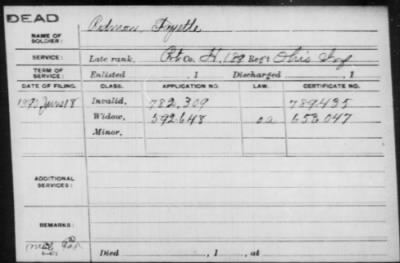 DEAD
NAME OF SOLDIER: Fayette
SERVICE: Late rank, Pvt Co. H, 189 Reg't Ohio Inf
TERM OF SERVICE: Enlisted , 1 Discharged , 1
DATE OF FILING. CLASS. APPLICATION NO. LAW. CERTIFICATE NO.
1890 June 18 Invalid, 782,309 789435
Widow, 592648 653,047
Minor,
ADDITIONAL SERVICES:
REMARKS:
Died , 1 , at